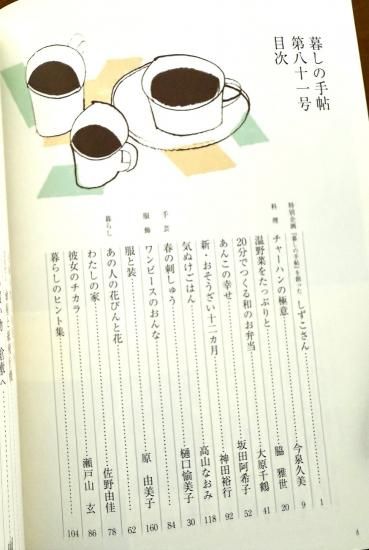 暮しの手帖
第八十一号
目次
特別企画 『暮しの手帖』を創った しずこさん 1
料理 チャーハンの極意 今泉久美 9
温野菜をたっぷりと 脇 雅世 20
20分でつくる和のお弁当 大原千鶴 41
あんこの幸せ 坂田阿希子 52
新・おそうざい十二カ月 神田裕行 92
気ぬけごはん 高山なおみ 118
手芸 春の刺しゅう 樋口愉美子 30
服飾 ワンピースのおんな 84
服と装 原 由美子 160
暮らし あの人の花びんと花 62
わたしの家 佐野由佳 78
彼女のチカラ 瀬戸山 玄 86
暮らしのヒント集 104